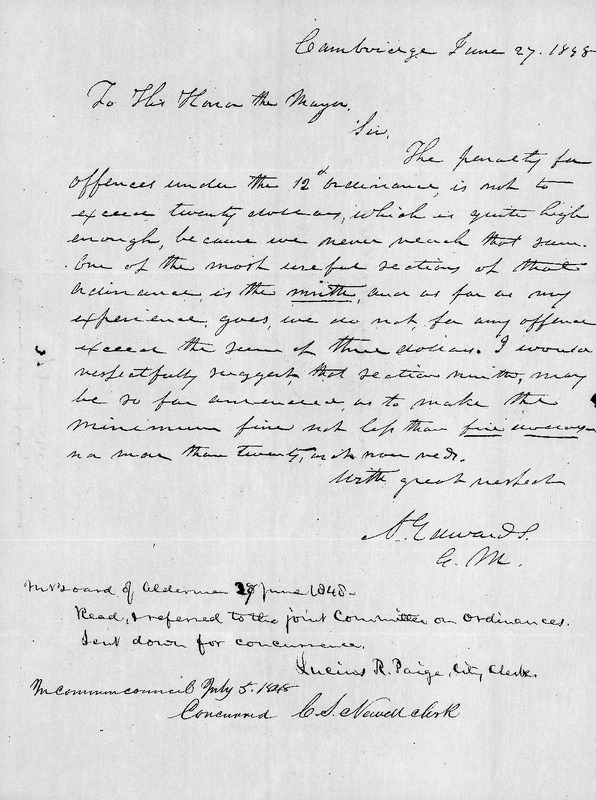 Cambridge June 27. 1848
To His Honor the Mayor,
Sir,
The penalty for
offences under the 12th Ordinance, is not to
exceed twenty dollars, which is quite high
enough, because we never reach that sum.
One of the most useful sections of that
Ordinance, is the ninth, and as far as my
experience, goes, we do not, for any offence
exceed the sum of three dollars. I would
respectfully suggest, that section ninth, may
be so far amended, as to make the
minimum fine not less than five dollars
no more than twenty, as it now reads.
With great respect
A. Edwards.
C. M.
In Board of Aldermen 28 June 1848.
Read, & referred to the joint Committee on Ordinances.
Sent down for concurrence.
Lucius R. Paige, City Clerk.
In Common council July 5. 1848
Concurred C. S. Newell Clerk